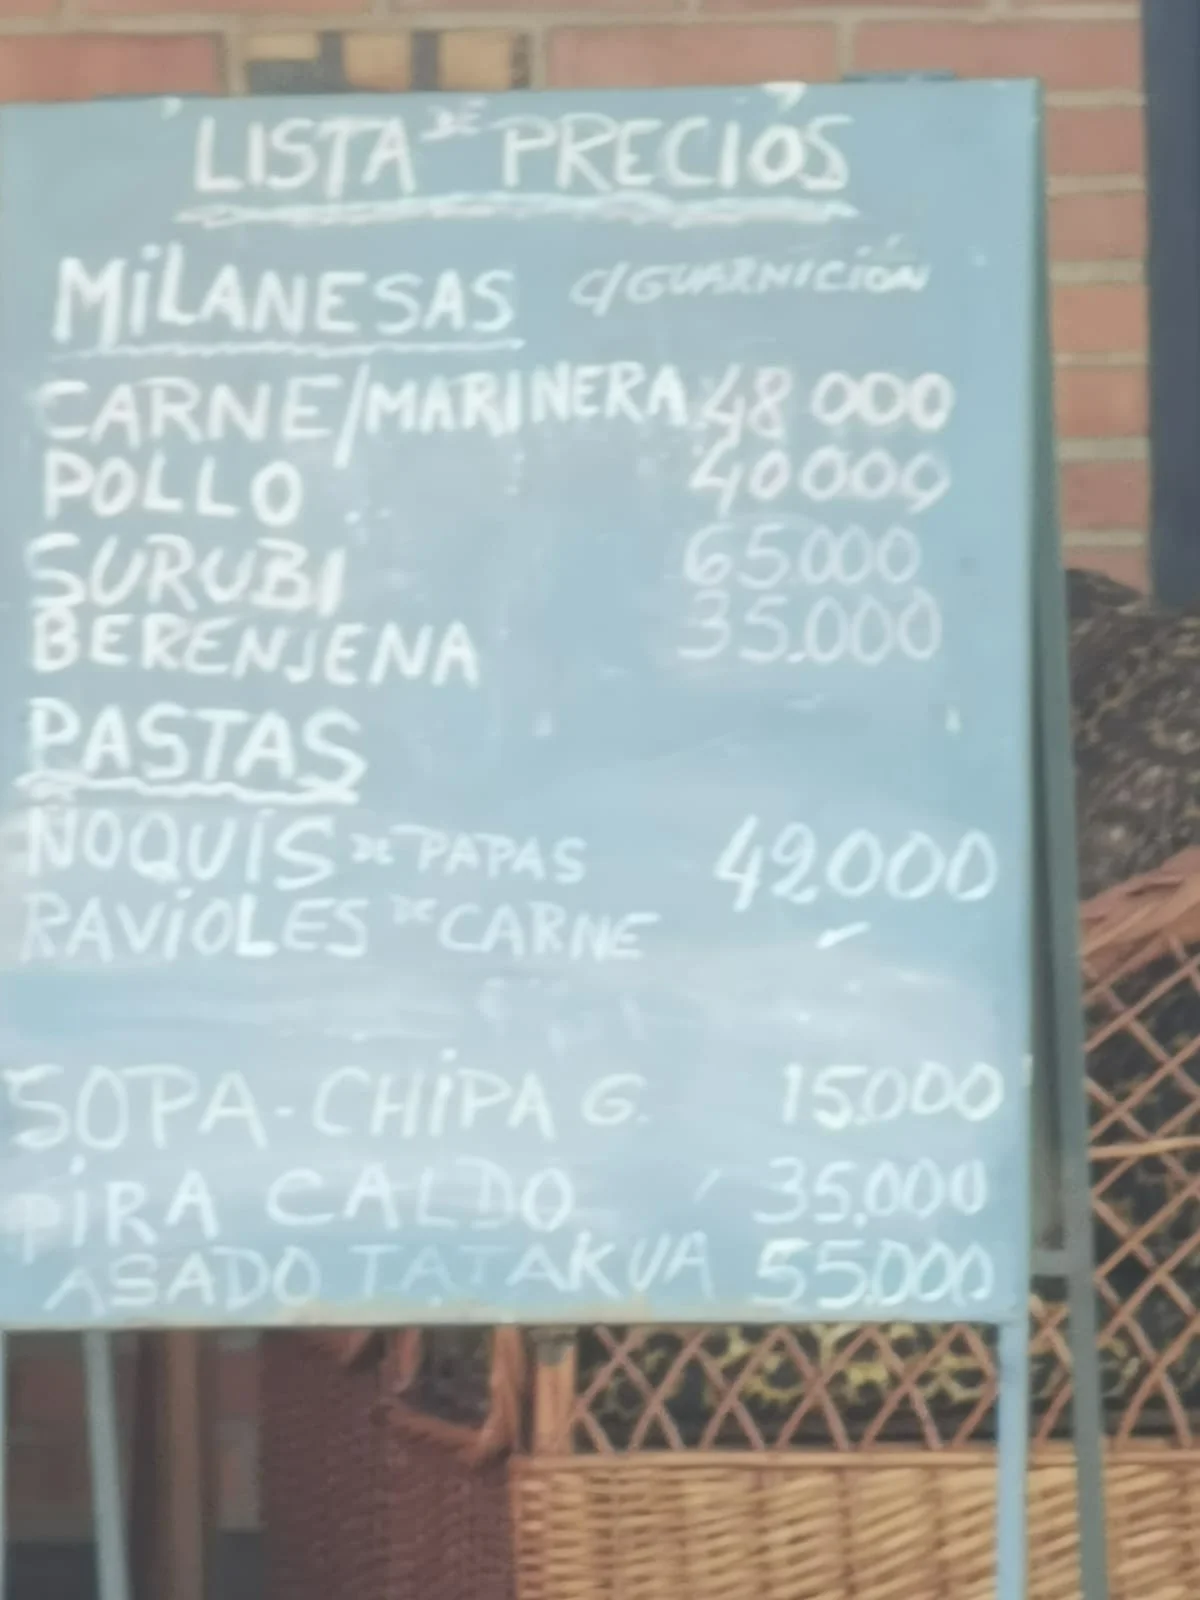 LISTA DE PRECIOS
MiLANESAS c/GUARNICIÓN
CARNE/MARINERA 48 000
POLLO 40000
SURUBI 65.000
BERENJENA 35.000
PASTAS
ÑOQUIS DE PAPAS 42000
RAViOLES DE CARNE
SOPA-CHiPA G. 15.000
PiRA CALDO 35.000
ASADO TATAKUA 55.000